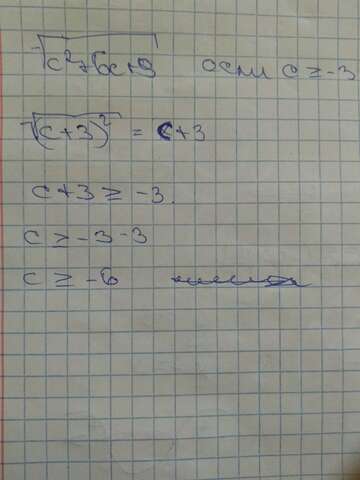 √c²+6c+9 если c ≥ -3
√(c+3)² = c+3
c+3 ≥ -3.
c ≥ -3-3
c ≥ -6